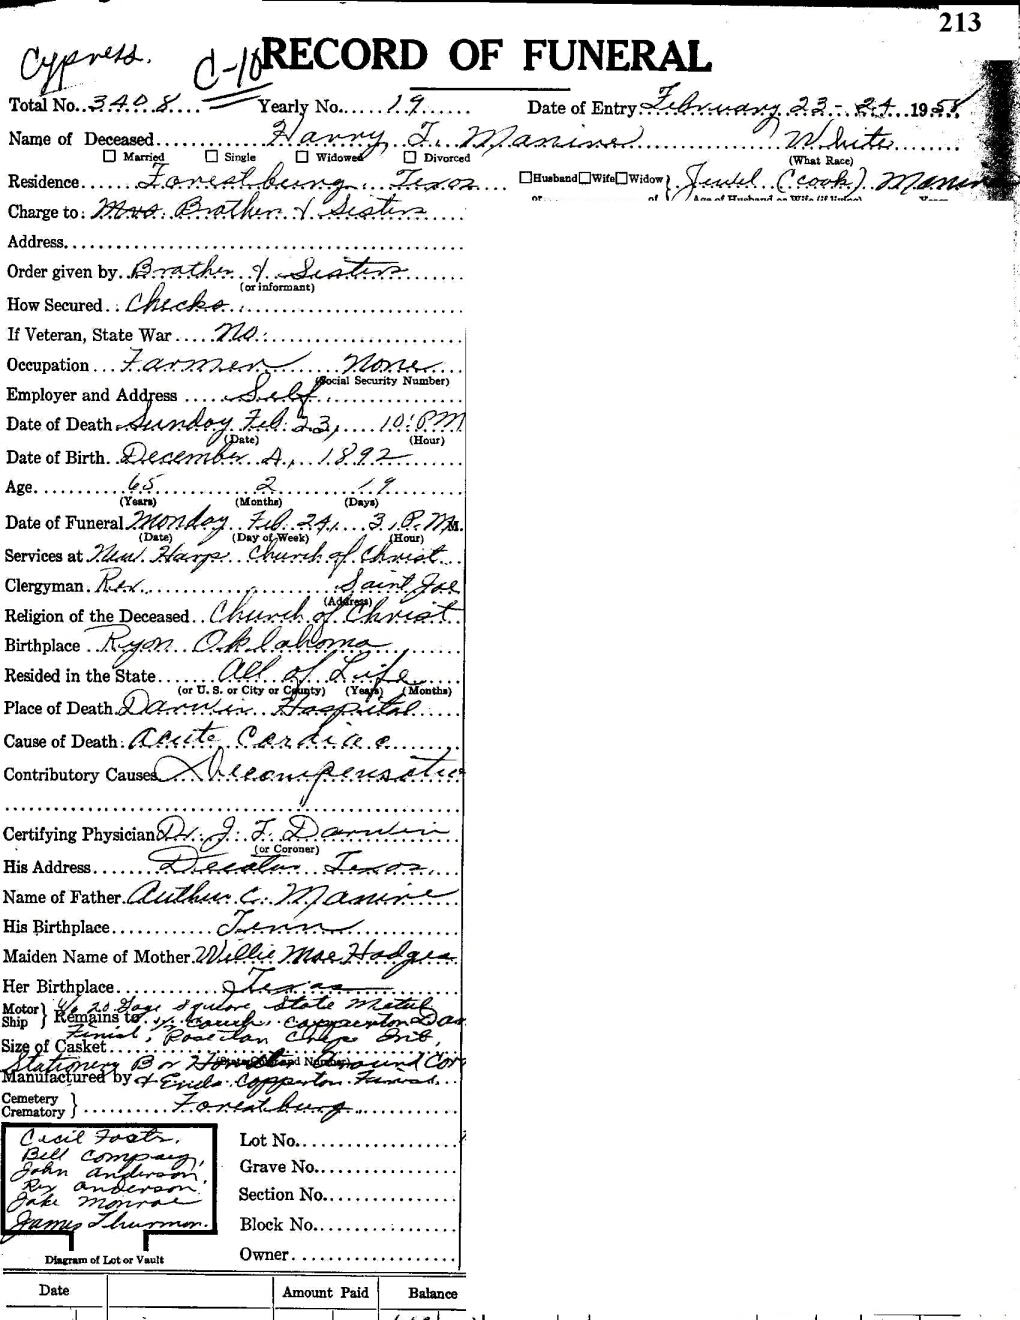 213
Cypress. C-10 RECORD OF FUNERAL
Total No. 3408 Yearly No. 19 Date of Entry February 23-24 1958
Name of Deceased Harry T. Manire White
Married Single Widowed Divorced (What Race)
Residence Forestburg Texas Husband Wife Widow } Jewel (Cook) Manire
or of Age of Husband or Wife (if living) Years
Charge to: Mrs. Brother & Sisters
Address
Order given by Brother & Sisters
(or informant)
How Secured Checks
If Veteran, State War No.
Occupation Farmer None
(Social Security Number)
Employer and Address Self
Date of Death Sunday Feb. 23, 10:PM
(Date) (Hour)
Date of Birth December 4, 1892
Age 65 2 19
(Years) (Months) (Days)
Date of Funeral Monday Feb. 24, 3, P.M. M.
(Date) (Day of Week) (Hour)
Services at New Harp Church of Christ
Clergyman Rev. Saint Joe
(Address)
Religion of the Deceased Church of Christ
Birthplace Ryon Oklahoma
Resided in the State All of Life
(or U. S. or City or County) (Years) (Months)
Place of Death Darwin Hospital
Cause of Death Acute Cardiac
Contributory Causes Decompensation
Certifying Physician Dr. J. T. Darwin
(or Coroner)
His Address Decatur Texas
Name of Father Authur C. Manire
His Birthplace Tenn
Maiden Name of Mother Willie Mae Hodges
Her Birthplace Texas
Motor Ship } 20 Gage Square State Metal
Remains to Couch, Copperton
Size of Casket Finish, Poseidan Crepe Int,
Stationery B or Ground Cor
Manufactured by & Ends Copperton
Cemetery Crematory } Forestburg
Cecil Foster,
Bell
John Anderson,
Rex Anderson
Jake Monroe
James Thurmon.
Lot No.
Grave No.
Section No.
Block No.
Owner
Diagram of Lot or Vault
Date Amount Paid Balance